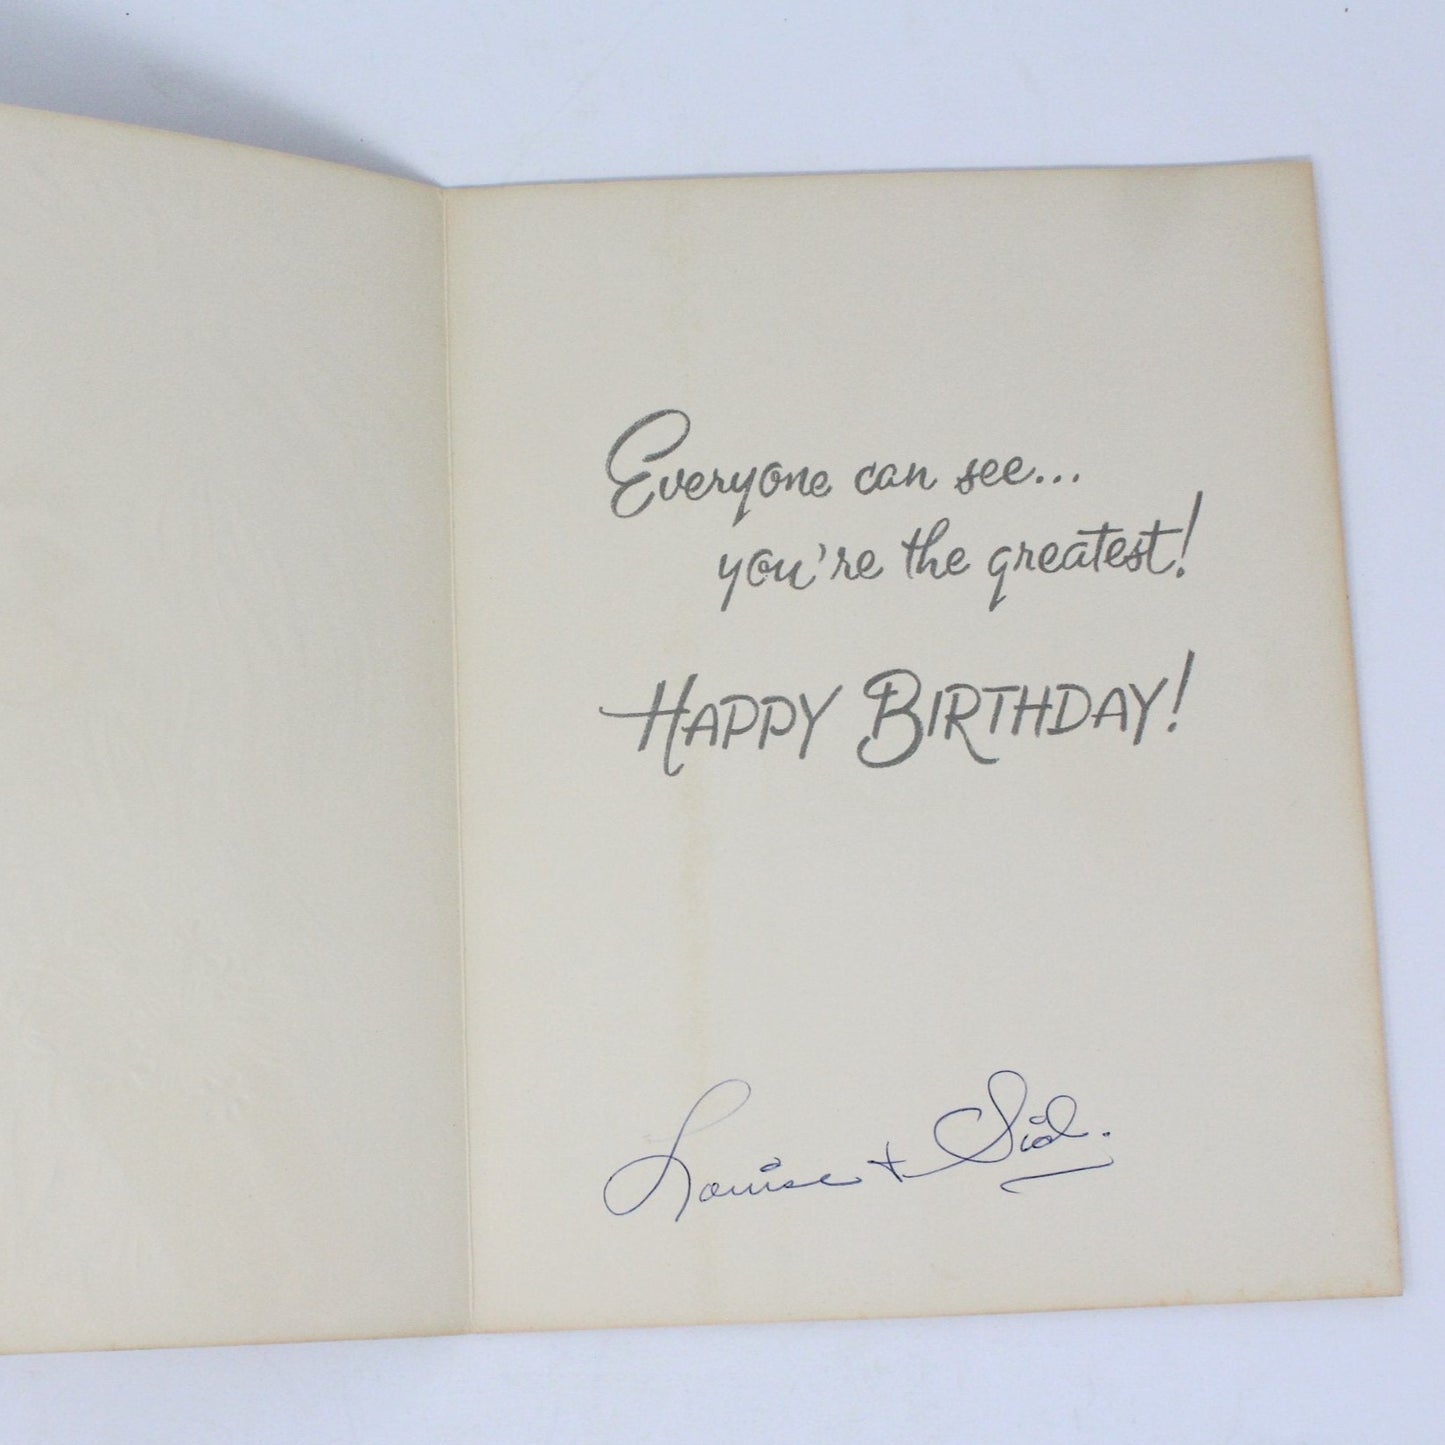 Everyone can see...
you're the greatest!
HAPPY BIRTHDAY!
Louise + Sid.